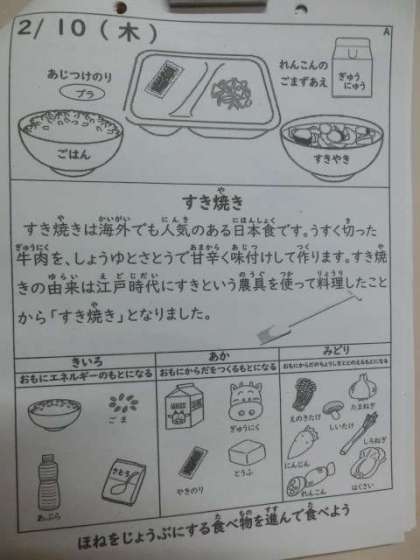 2/10(木)
A
あじつけのり
プラ
れんこんの
ごまずあえ
ぎゅう
にゅう
ごはん
すきやき
すき焼き
すき焼きは海外でも人気のある日本食です。うすく切った
牛肉を、しょうゆとさとうで甘辛く味付けして作ります。すき焼
きの由来は江戸時代にすきという農具を使って料理したこと
から「すき焼き」となりました。
きいろ
あか
みどり
おもにエネルギーのもとになる
おもにからだをつくるもとになる
おもにからだのちょうしをととのえるもとになる
ごま
あぶら
さとう
ぎゅうにく
やきのり
とうふ
えのきたけ
しいたけ
たまねぎ
にんじん
しろねぎ
れんこん
はくさい
ほねをじょうぶにする食べ物を進んで食べよう